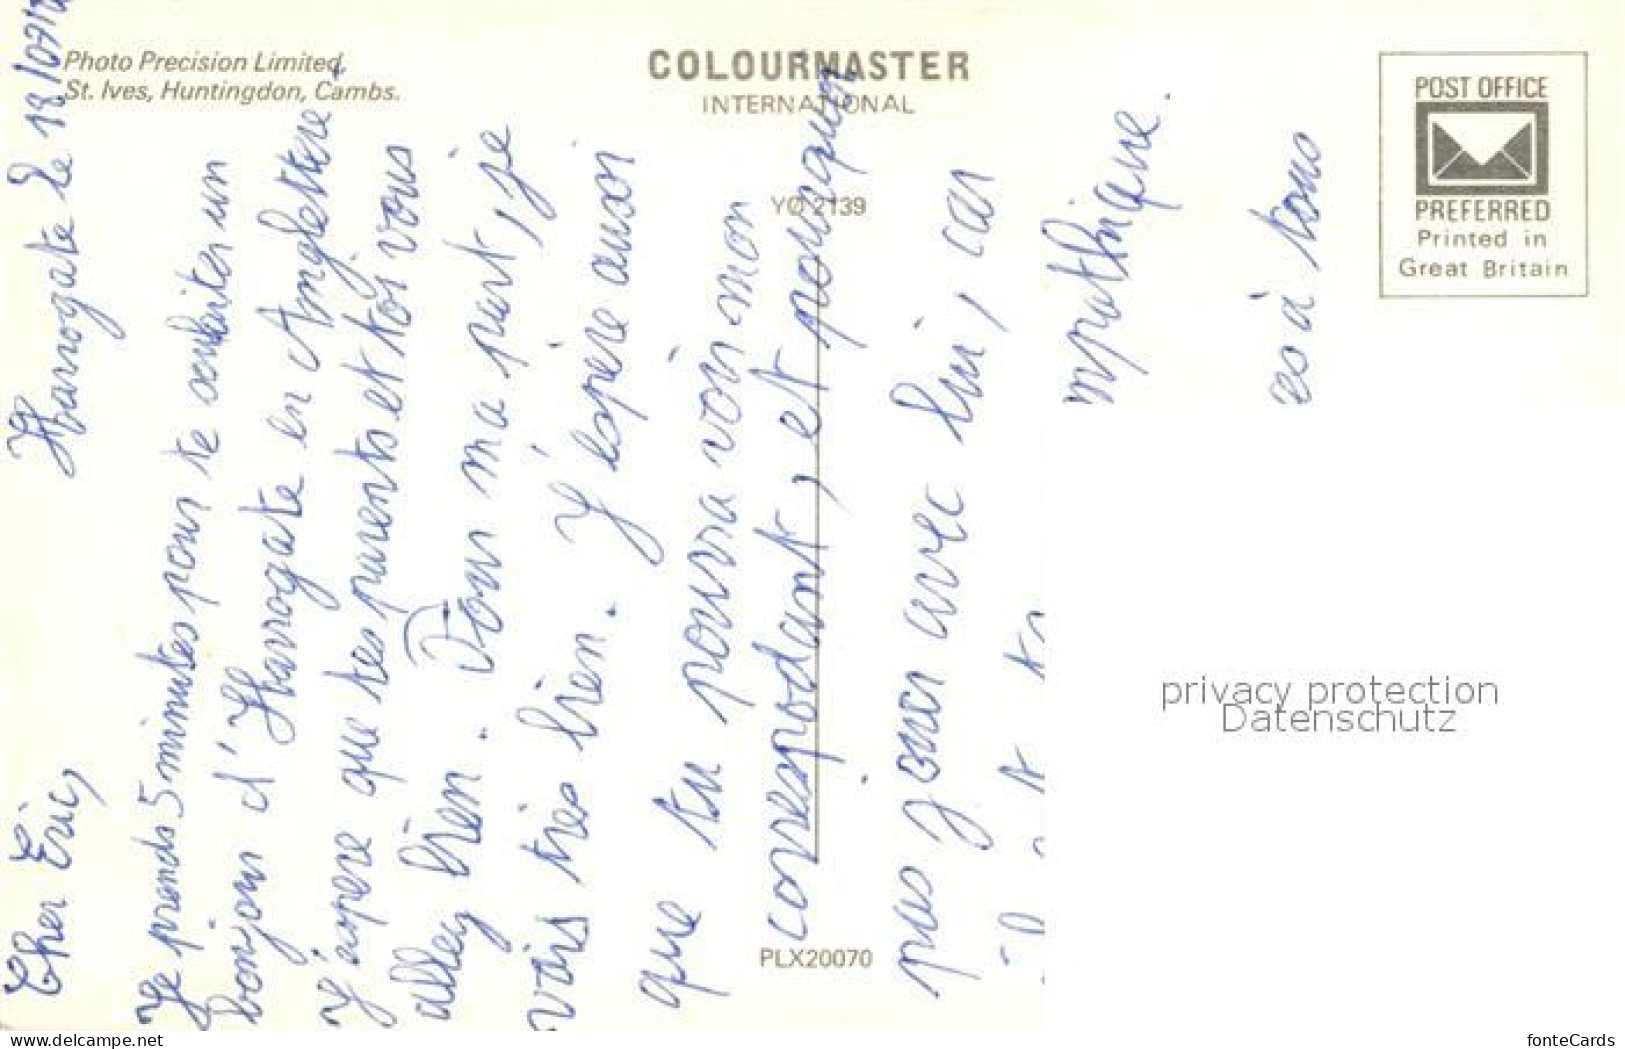 Photo Precision Limited,
St. Ives, Huntingdon, Cambs.
COLOURMASTER
INTERNATIONAL
YO 2139
PLX20070
POST OFFICE
PREFERRED
Printed in
Great Britain
Harrogate le 18/07/
Cher Eric,
Je prends 5 minutes pour te souhaiter un
bonjour d'Harrogate en Angleterre.
J'éspère que tes parents et toi vous
allez bien. Pour ma part, je
vais très bien. J'éspère aussi
que tu pourra voir mon
correspodant, et pourquoi
pas jouer avec lui, car
mpathique.
es à tous
privacy protection
Datenschutz
www.delcampe.net
fonteCards